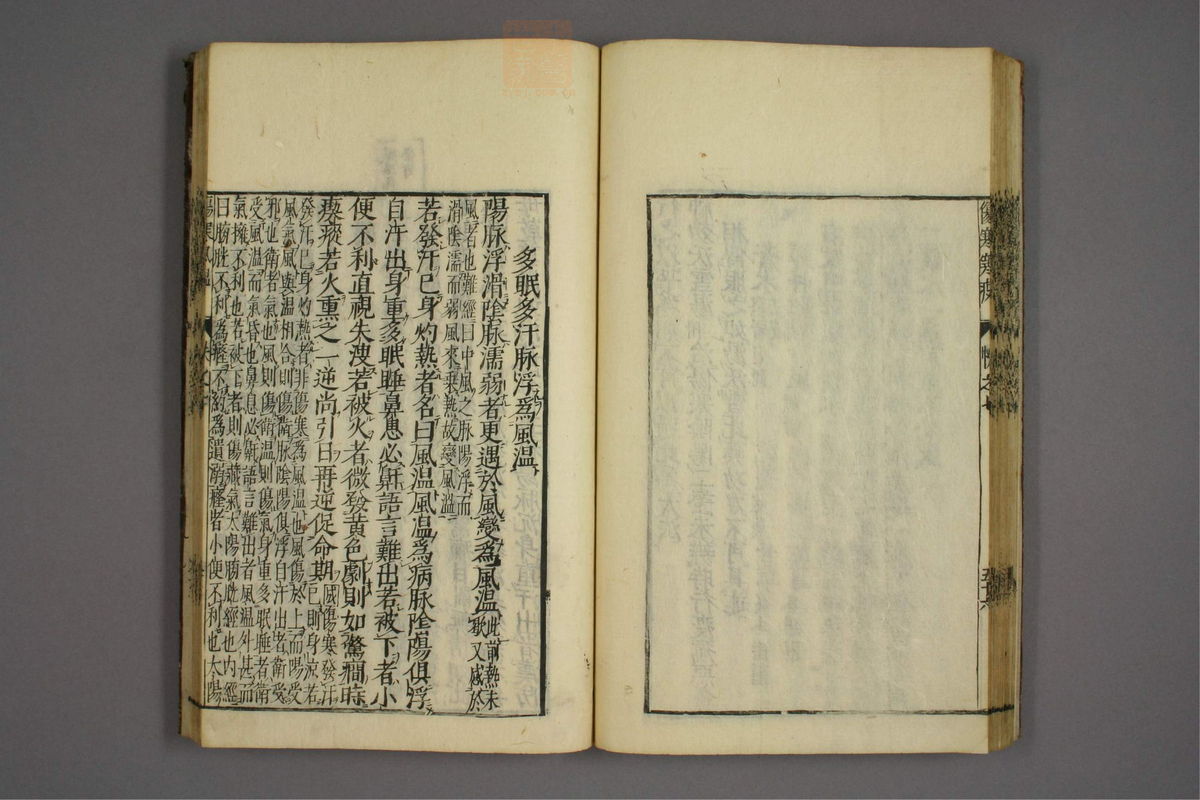 傷寒
卷之七
多眠多汗脉浮爲風温
陽脉浮滑陰脉濡弱者更遇於風變爲風温此前熱未歇又感於
風者也難經曰中風之脉陽浮而滑陰濡而弱風來乗熱故變風温
若發汗已身灼熱者名曰風温風温爲病脉陰陽俱浮
自汗出身重多眠睡鼻息必鼾語言難出若被下者小
便不利直視失溲若被火者微發黄色劇則如驚癇時
瘈瘲若火熏之一逆尚引日再逆促命期傷寒發汗已則身凉若
發汗已身灼熱者非傷寒爲風温也風傷於上而陽受
風氣風與温相合則傷衛脉陰陽俱浮自汗出者衛受
邪也衛者氣也風則傷衛温則傷氣身重多眠睡者衛
受風温而氣昏也鼻息必鼾語言難出者風温外甚而
氣擁不利也若被下者則傷藏氣太陽膀胱經也内經
曰膀胱不利爲癃不約爲遺溺癃者小便不利也太陽
傷寒